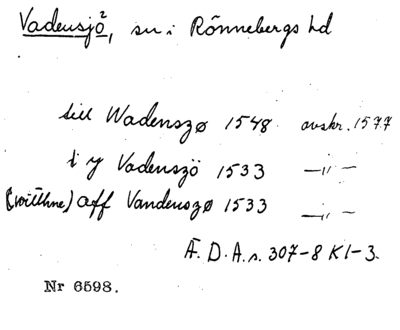 Vadensjö², sn i Rönnebergs hd
till Wadenszø 1548 avskr. 1577
i y Vadenszö 1533 —„—
(witthne) aff Vandenszø 1533 —„—
Ä. D. A. s. 307-8 K1-3.
Nr 6598.